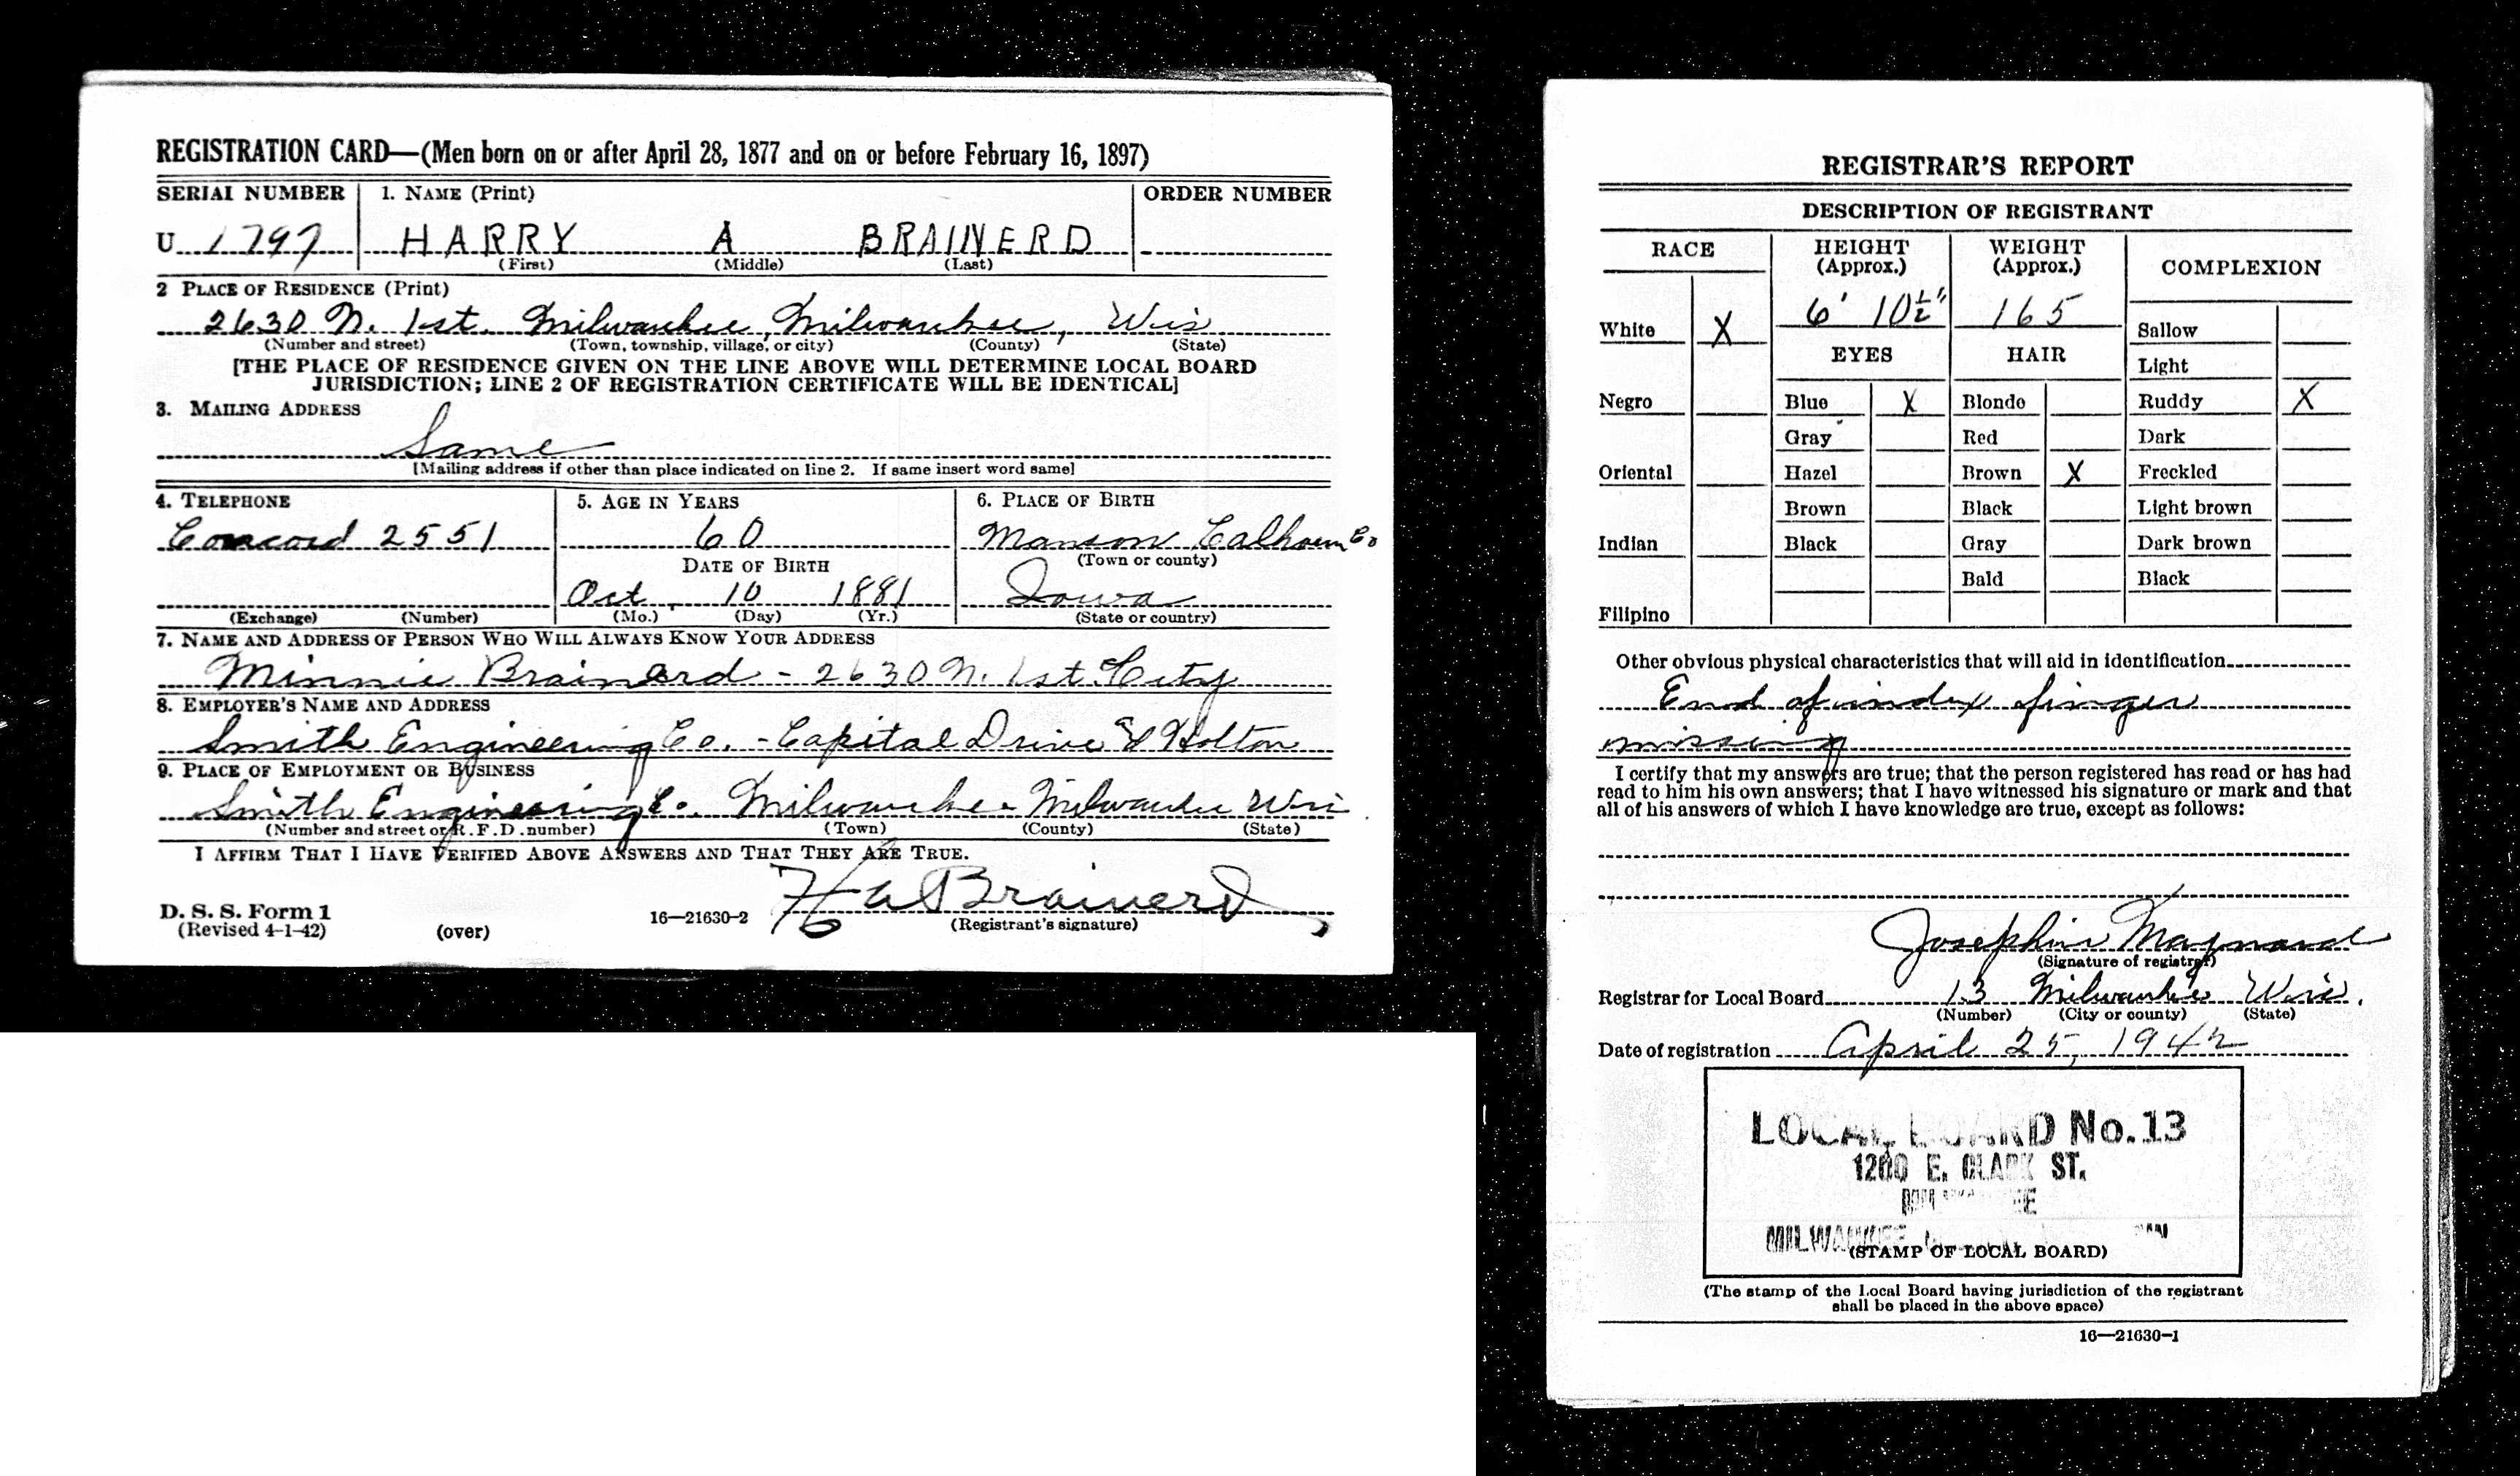 REGISTRATION CARD—(Men born on or after April 28, 1877 and on or before February 16, 1897)
SERIAL NUMBER 1. NAME (Print) ORDER NUMBER
U 1797 HARRY A BRAINERD
(First) (Middle) (Last)
2 PLACE OF RESIDENCE (Print)
2630 N. 1st. Milwaukee, Milwaukee, Wis
(Number and street) (Town, township, village, or city) (County) (State)
[THE PLACE OF RESIDENCE GIVEN ON THE LINE ABOVE WILL DETERMINE LOCAL BOARD
JURISDICTION; LINE 2 OF REGISTRATION CERTIFICATE WILL BE IDENTICAL]
3. MAILING ADDRESS
Same
[Mailing address if other than place indicated on line 2. If same insert word same]
4. TELEPHONE 5. AGE IN YEARS 6. PLACE OF BIRTH
Concord 2551 60 Manson Calhoun Co
DATE OF BIRTH (Town or county)
Oct. 10 1881 Iowa
(Exchange) (Number) (Mo.) (Day) (Yr.) (State or country)
7. NAME AND ADDRESS OF PERSON WHO WILL ALWAYS KNOW YOUR ADDRESS
Minnie Brainerd - 2630 N. 1st. City
8. EMPLOYER'S NAME AND ADDRESS
Smith Engineering Co. - Capital Drive & Holton
9. PLACE OF EMPLOYMENT OR BUSINESS
Smith Engineering Co. Milwaukee Milwaukee Wis
(Number and street or R. F. D. number) (Town) (County) (State)
I AFFIRM THAT I HAVE VERIFIED ABOVE ANSWERS AND THAT THEY ARE TRUE.
H A Brainerd
D. S. S. Form 1
(Revised 4-1-42) (over) 16—21630-2 (Registrant's signature)
REGISTRAR'S REPORT
DESCRIPTION OF REGISTRANT
RACE HEIGHT (Approx.) WEIGHT (Approx.) COMPLEXION
White X 6' 10½" 165 Sallow
EYES HAIR Light
Negro Blue X Blonde Ruddy X
Gray Red Dark
Oriental Hazel Brown X Freckled
Brown Black Light brown
Indian Black Gray Dark brown
Bald Black
Filipino
Other obvious physical characteristics that will aid in identification
End of index finger
missing
I certify that my answers are true; that the person registered has read or has had
read to him his own answers; that I have witnessed his signature or mark and that
all of his answers of which I have knowledge are true, except as follows:
Josephine Maynard
(Signature of registrar)
Registrar for Local Board 13 Milwaukee Wis.
(Number) (City or county) (State)
Date of registration April 25, 1942
LOCAL BOARD No. 13
1200 E. CLARK ST.
MILWAUKEE
(STAMP OF LOCAL BOARD)
(The stamp of the Local Board having jurisdiction of the registrant
shall be placed in the above space)
16—21630-1